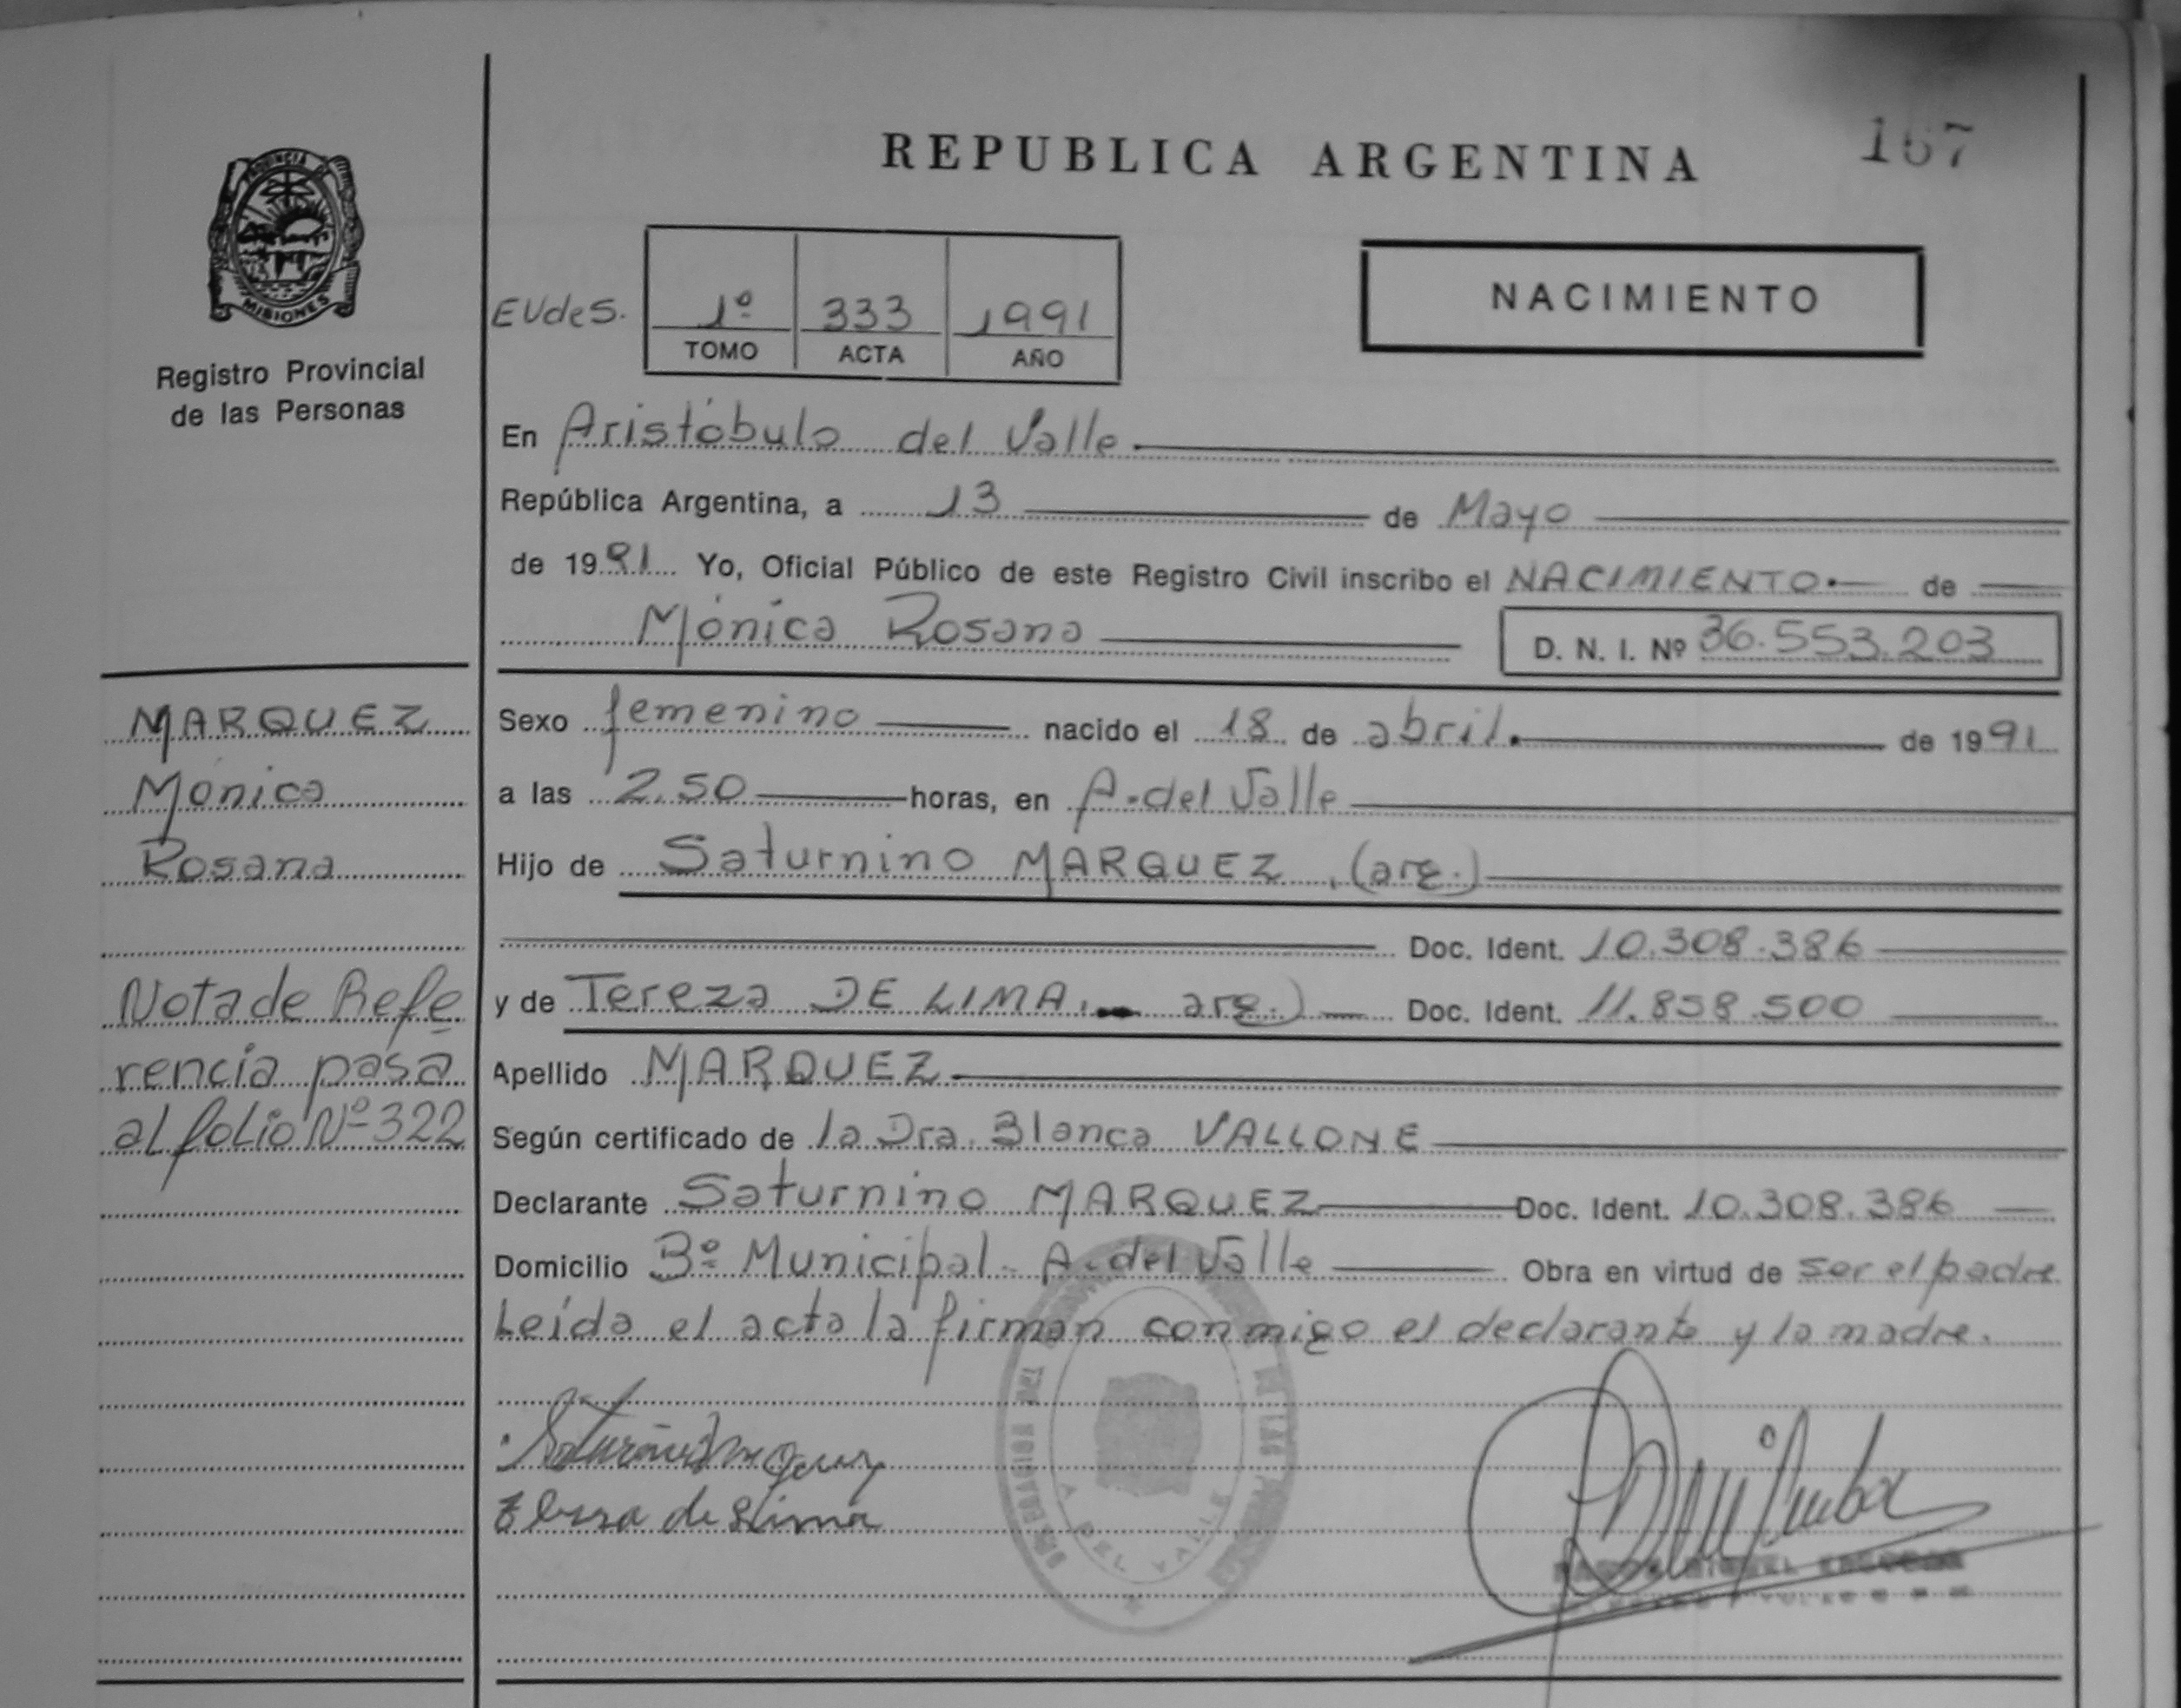 REPUBLICA ARGENTINA
167
PROVINCIA DE
MISIONES
Registro Provincial
de las Personas
EUdeS.
1º 333 1991
TOMO ACTA AÑO
NACIMIENTO
En Aristóbulo del Valle.
República Argentina, a 13 de Mayo
de 1991 Yo, Oficial Público de este Registro Civil inscribo el NACIMIENTO. de
Mónica Rosana D. N. I. Nº 36.553.203
MARQUEZ
Mónica
Rosana
Nota de Refe
rencia pasa
al folio Nº 322
Sexo femenino nacido el 18 de abril. de 1991
a las 2.50 horas, en A. del Valle
Hijo de Saturnino MARQUEZ (arg.)
Doc. Ident. 10.308.386
y de Tereza DE LIMA. arg.) Doc. Ident. 11.858.500
Apellido MARQUEZ
Según certificado de la Dra. Blanca VALLONE
Declarante Saturnino MARQUEZ Doc. Ident. 10.308.386
Domicilio Bº Municipal - A. del Valle Obra en virtud de ser el padre
Leída el acta la firman conmigo el declarante y la madre.
de Lima
A DEL VALLE